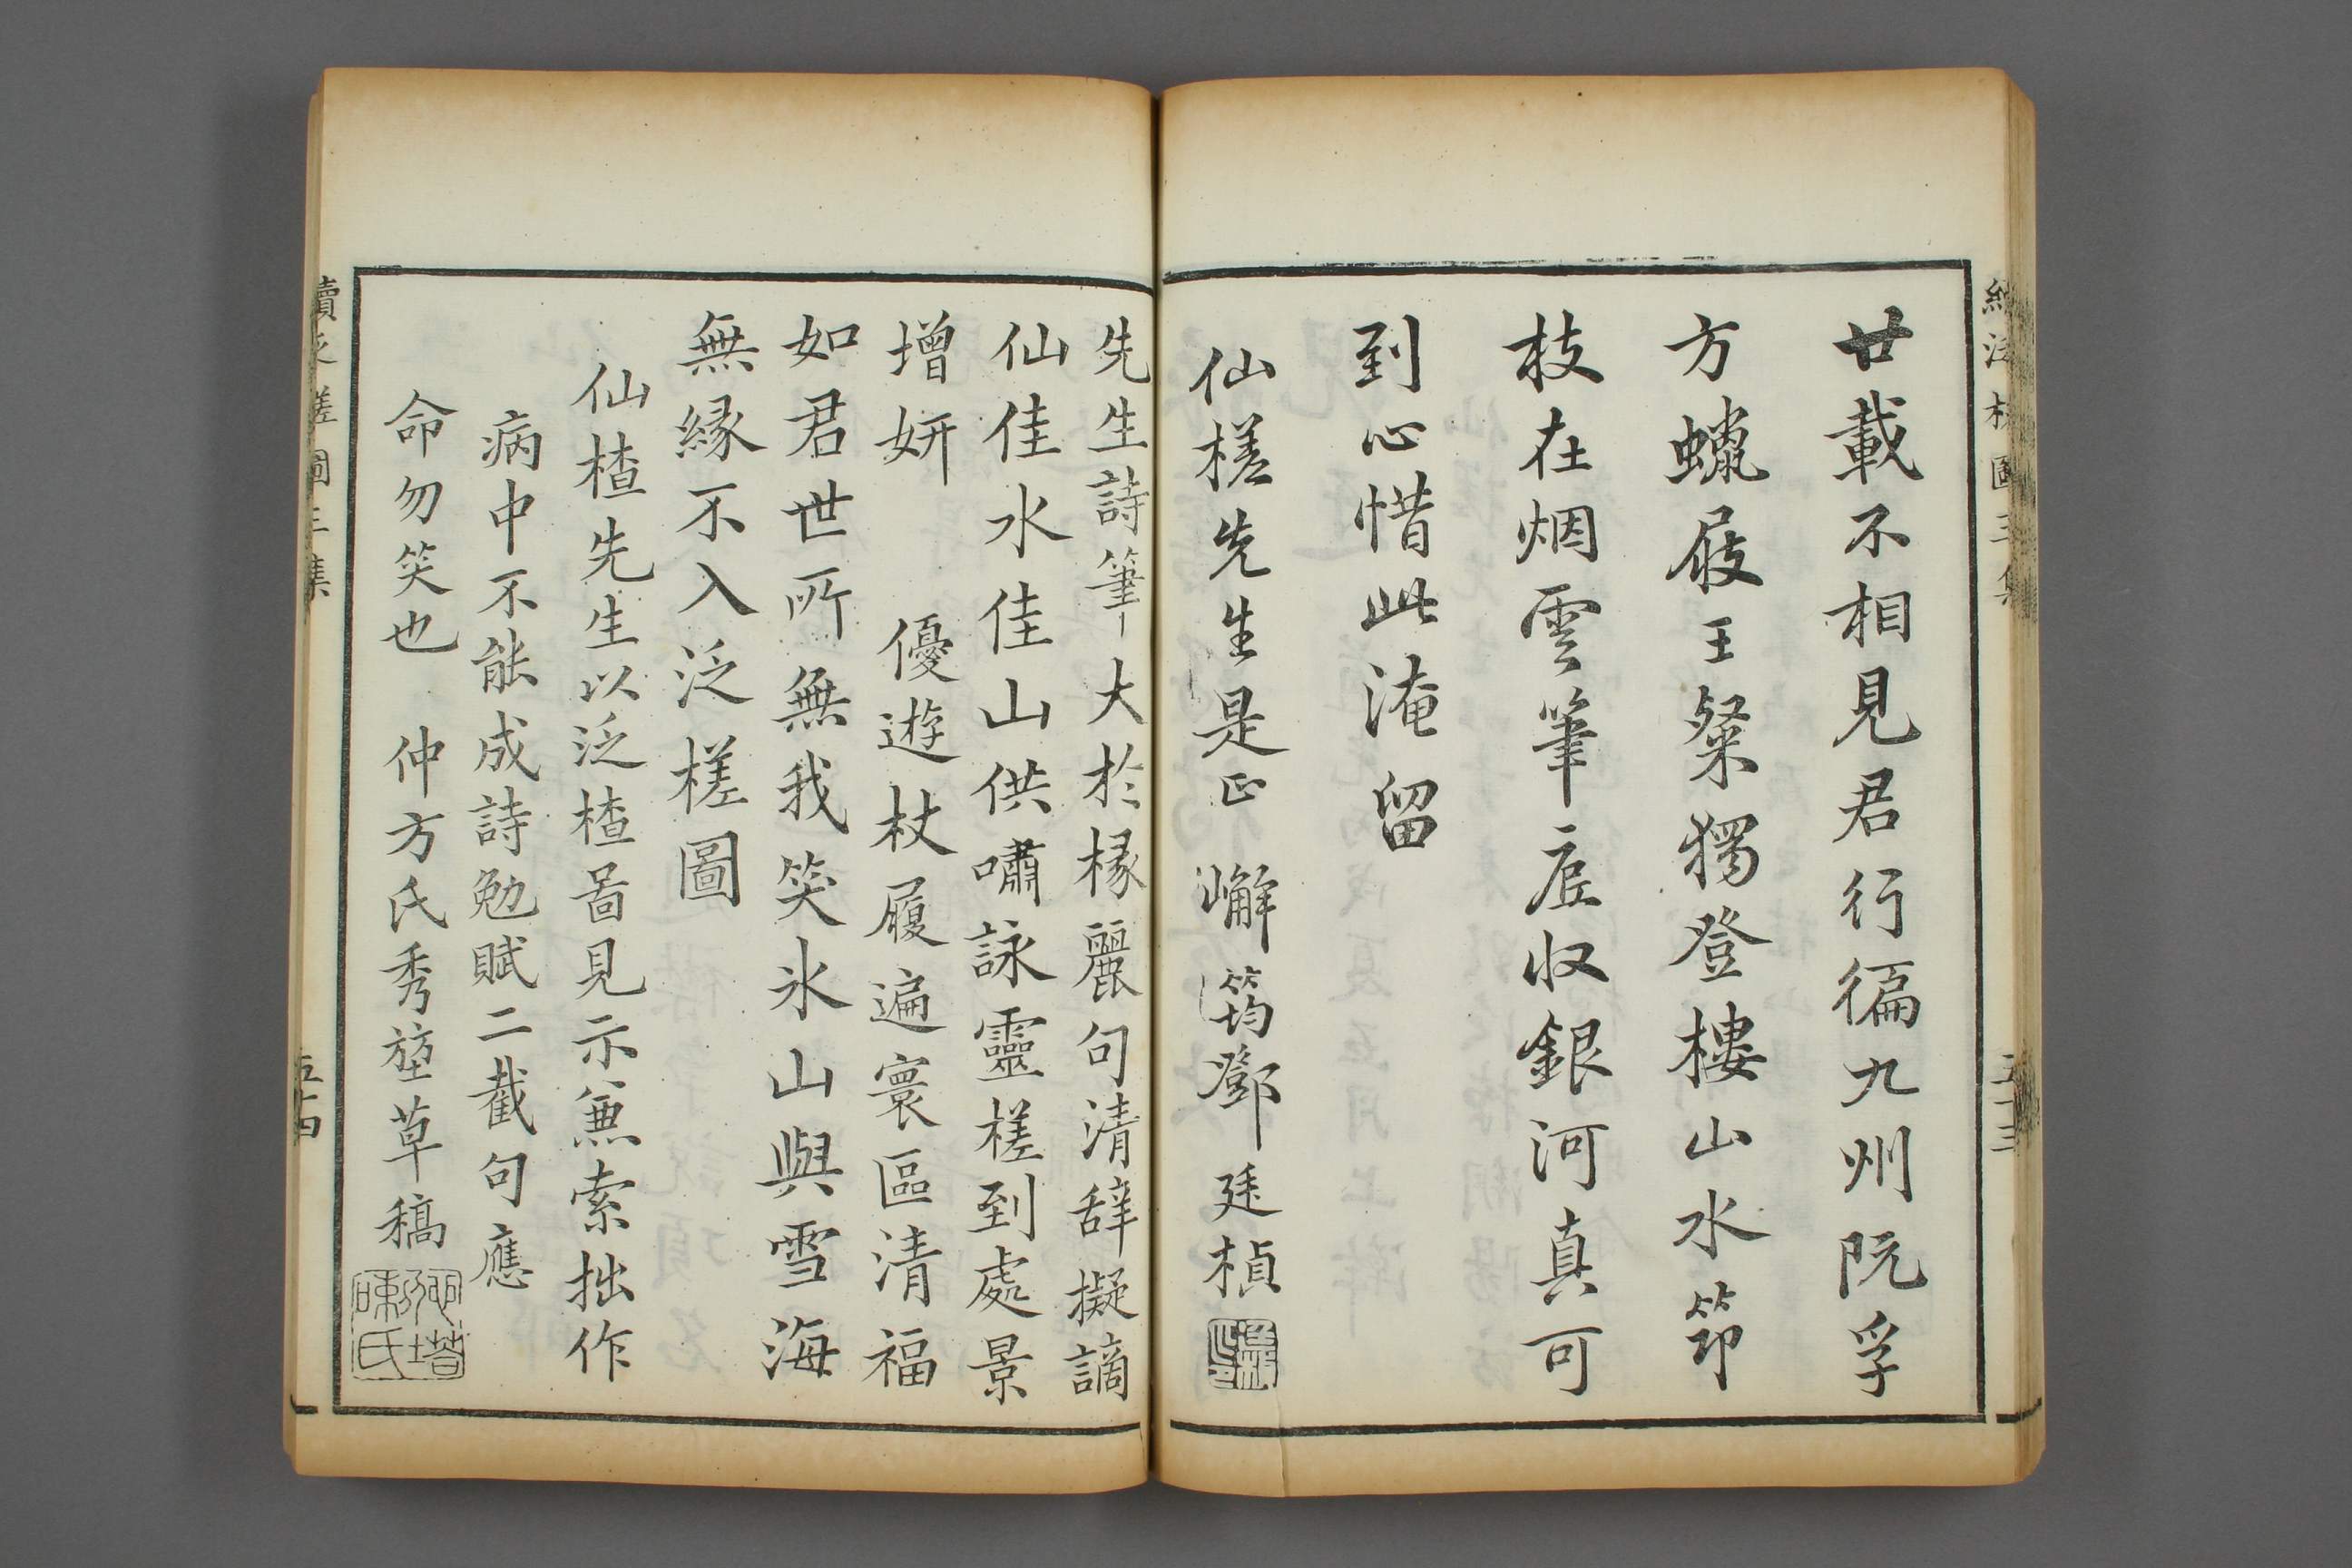 廿載不相見君行徧九州阮孚
方蠟屐王粲獨登樓山水笻
枝在烟雲筆底收銀河真可
到心惜此淹留
仙槎先生是正 嶰筠鄧廷楨
先生詩筆大於椽麗句清辭擬謫
仙佳水佳山供嘯詠靈槎到處景
增妍 優遊杖履遍寰區清福
如君世所無我笑氷山與雪海
無緣不入泛槎圖
仙楂先生以泛楂啚見示兼索拙作
病中不能成詩勉賦二截句應
命勿笑也 仲方氏秀堃草稿
續泛槎圖三集
五十三
續泛槎圖三集
五十四